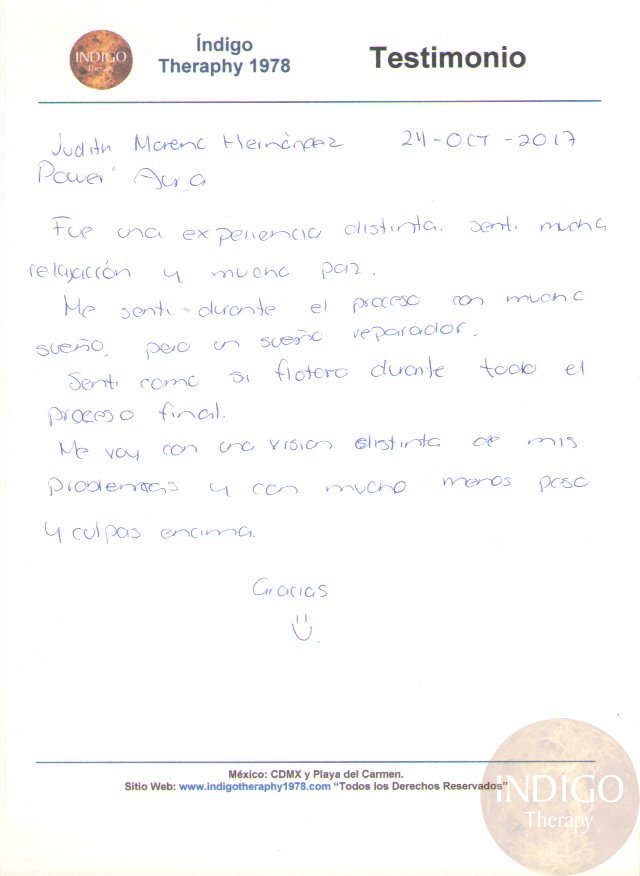 INDIGO
Therapy
Índigo
Theraphy 1978
Testimonio
Judith Moreno Hernández 24-OCT-2017
Power Aura
Fue una experiencia distinta. senti mucha
relajacción y mucha paz.
Me senti durante el proceso con mucho
sueño, pero un sueño reparador.
Senti como si flotara durante todo el
proceso final.
Me voy con una visión distinta de mis
problemas y con mucho menos peso
y culpas encima.
Gracias
México: CDMX y Playa del Carmen.
Sitio Web: www.indigotheraphy1978.com "Todos los Derechos Reservados"
INDIGO
Therapy